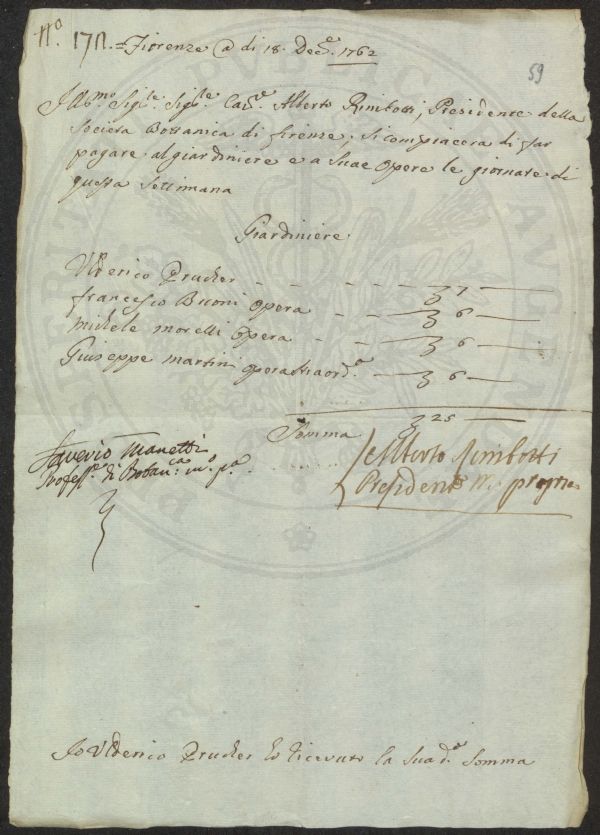 Nº. 1711. = Fiorenze @ di 18. Decᵉ. 1762
59
Illᵐᵒ Sigʳᵉ Sigʳᵉ Caᵛᵉ. Alberto Rimbotti, Presidente della
Societa Bottanica di firenze, Si compiacera di far
pagare al giardiniere e a Suae opere le giornate di
questa Settimana
Giardiniere
Ulderico Prucker - - - - ʒ 7 —
francesco Buoni opera - - ʒ 6 —
michele morelli opera - - ʒ 6 —
Giuseppe martini opera straordᵃ - ʒ 6 —
Somma ʒ 25 —
Saverio Manetti
Profesˢᵉ di Botanᶜᵃ: mᵒ pᵃ
Alberto Rimbotti
Presidente Mº. propria
Io Ulderico Prucker ho ricevuto la Suadᵃ Somma
PUBLICAE
AUGENDAE